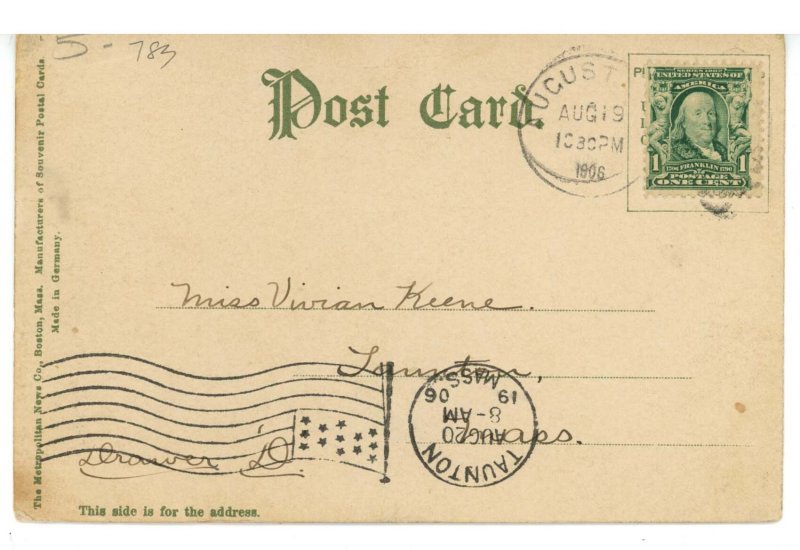 5- 783
Post Card.
AUGUST
AUG 19
10 30 PM
1906
SERIES 1902
UNITED STATES OF
AMERICA
1 1706 FRANKLIN 1790 1
POSTAGE
ONE CENT
The Metropolitan News Co., Boston, Mass. Manufacturers of Souvenir Postal Cards.
Made in Germany.
Miss Vivian Keene.
Taunton,
Mass.
Drawer "D"
TAUNTON
AUG 20
8-AM
19 06
MASS.
This side is for the address.